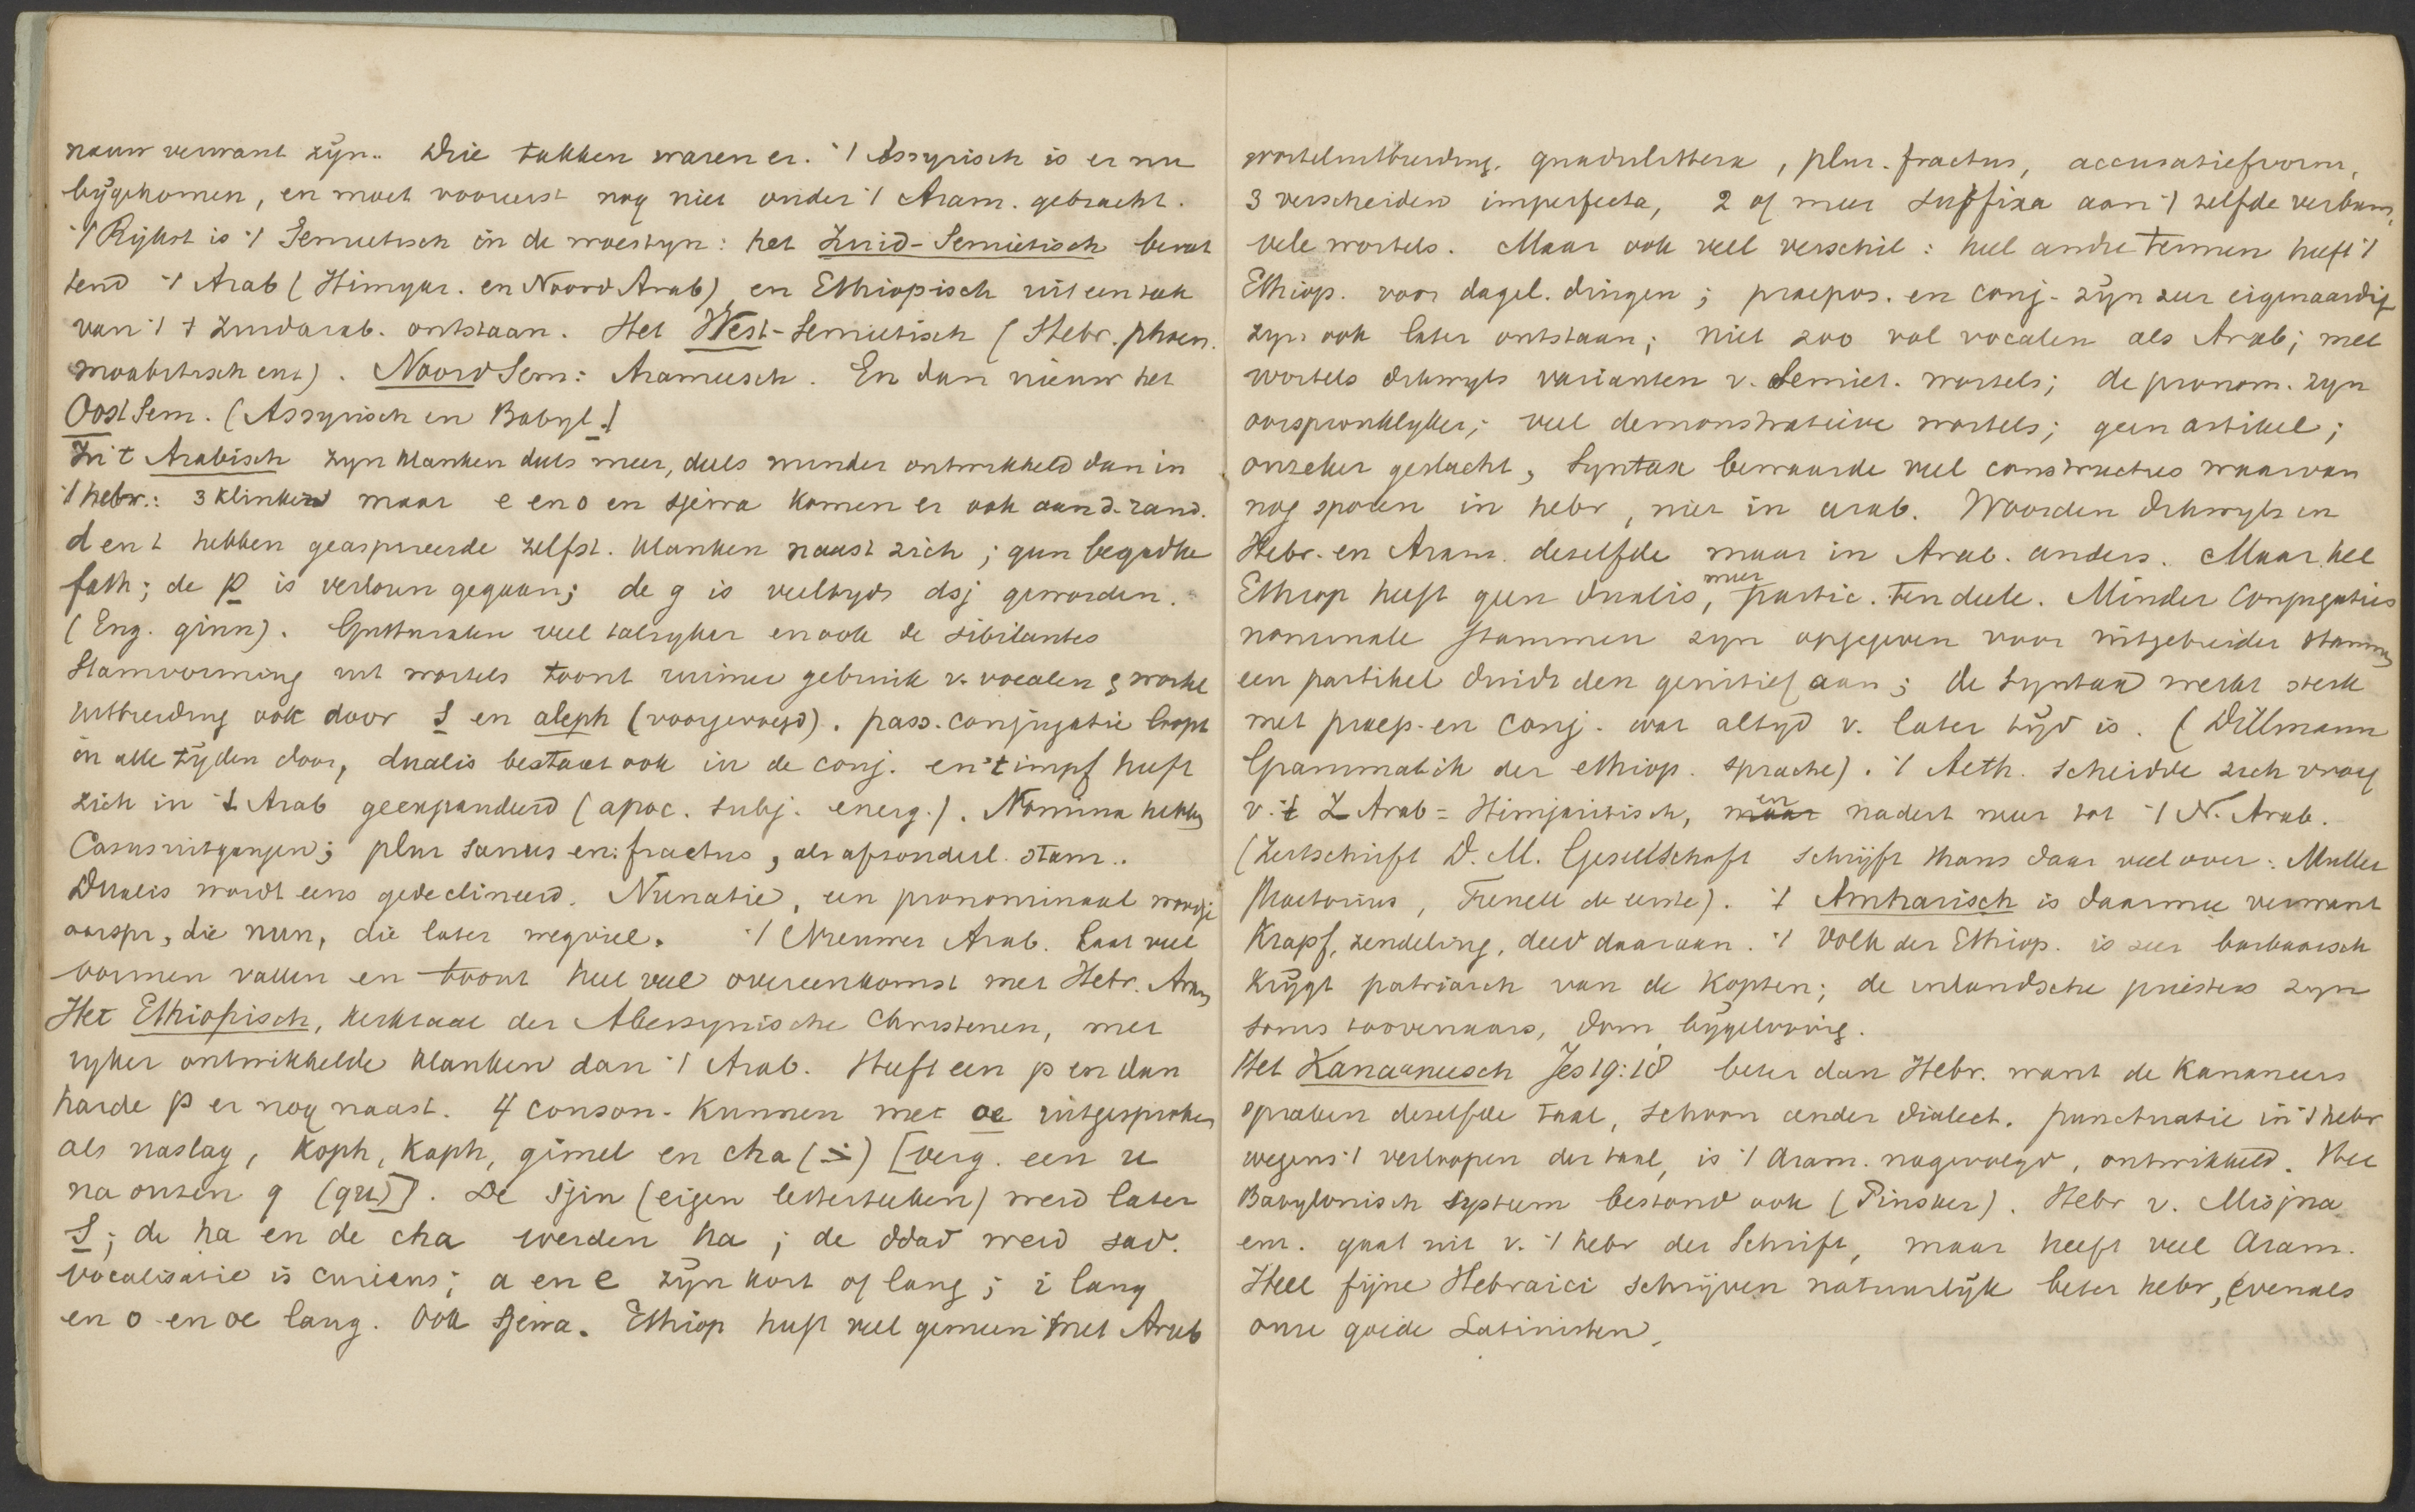 nauw verwant zijn. Drie takken waren er. 't Assyrisch is er nu
bygekomen, en moet voorerst nog niet onder 't Aram. gebracht.
't Rijkst is 't Semietisch in de woestyn: het Zuid-Semietisch bevat
tend 't Arab (Himyar. en Noord Arab) en Ethiopisch uit een tak
van 't Zuidarab. ontstaan. Het West-Semietisch (Hebr. phoen.
moabitisch enz). Noord Sem: Arameesch. En dan nieuw het
Oost Sem. (Assyrisch en Babyl.)
In 't Arabisch zyn klanken deels meer, deels minder ontwikkeld dan in
't hebr.: 3 klinkers maar e en o en sjewa komen er ook aan d. rand.
d en t hebben geaspireerde zelfst. klanken naast zich; geen begadke
fath; de p is verloren gegaan; de g is veeltyds dsj geworden.
(Eng. ginn). Gutturalen veel talryker en ook de sibilantes
Stamvorming uit wortels toont ruimer gebruik v. vocalen; wortel
uitbreiding ook door s en aleph (voorgevoegd). pass. conjugatie loopt
in alle tyden door, dualis bestaat ook in de conj. en 't impf heeft
zich in 't Arab geexpandeerd (apoc. subj. energ.). Nomina hebben
Casusuitgangen; plur sanus en: fractus, als afzonderl. stam..
Dualis wordt eens gedeclineerd. Nunatie, een pronominaal woordje
oorspr, die nun, die later wegviel. 't Nieuwer Arab. laat veel
vormen vallen en toont heel veel overeenkomst met Hebr. Aram
Het Ethiopisch, kerktaal der Abessynische Christenen, met
ryker ontwikkelde klanken dan 't Arab. Heeft een p en dan
harde p er nog naast. 4 conson. kunnen met oe uitgesproken
als naslag, Koph, Kaph, gimel en cha (خ) [verg. een u
na onzen q (qu)]. De Sjin (eigen letterteeken) werd later
S; de ha en de cha werden ha; de ddad werd sad.
vocalisatie is curieus; a en e zyn kort of lang; i lang
en o en oe lang. Ook sjewa. Ethiop heeft veel gemeen met Arab
worteluitbreiding. quadrilittera, plur. fractus, accusatiefvorm,
3 verscheiden imperfecta, 2 of meer suffixa aan 't zelfde verbum,
vele wortels. Maar ook veel verschil: heel andre termen heeft 't
Ethiop. voor dagel. dingen; praepos. en conj. zyn zeer eigenaardig
zyn ook later ontstaan; niet zoo vol vocalen als Arab; met
wortels dikwyls varianten v. Semiet. wortels; de pronom. zyn
oorspronklyker; veel demonstratieve wortels; geen artikel;
onzeker geslacht, Syntax bewaarde veel constructies waarvan
nog sporen in hebr, niet in arab. Woorden dikwyls in
Hebr. en Aram. deselfde maar in Arab. anders. Maar het
Ethiop heeft geen dualis, meer partic. ten deele. Minder Conjugaties
nominale stammen zyn opgegeven voor uitgebreider stammen
een partikel duidt den genitief aan; de Syntax werkt sterk
met praep. en conj. wat altyd v. later tijd is. (Dillmann
Grammatik der ethiop. sprache). 't Aeth. scheidde zich vroeg
v. 't Z Arab = Himjaritisch, maar en nadert meer tot 't N. Arab.
(Zeitschrift D. M. Gesellschaft schrijft thans daar veel over: Muller
Praetorius, de eerste). 't Amharisch is daarmee verwant
Krapf, zendeling, deed daaraan. 't Volk der Ethiop. is zeer barbaarsch
krijgt patriarch van de Kopten; de inlandsche priesters zyn
soms toovenaars, dom bijgeloovig.
Het Kanaaneesch Jes 19:18 beter dan Hebr. want de Kananeers
spraken deselfde taal, schoon ander dialect. punctuatie in 't hebr
wegens 't verloopen der taal, is 't Aram. nagevolgd, ontwikkeld. Het
Babylonisch systeem bestond ook (Pinsker). Hebr v. Misjna
em. gaat uit v. 't hebr der Schrift, maar heeft veel Aram.
Heel fijne Hebraici schrijven natuurlijk beter hebr, evenals
onze goede Latinisten.